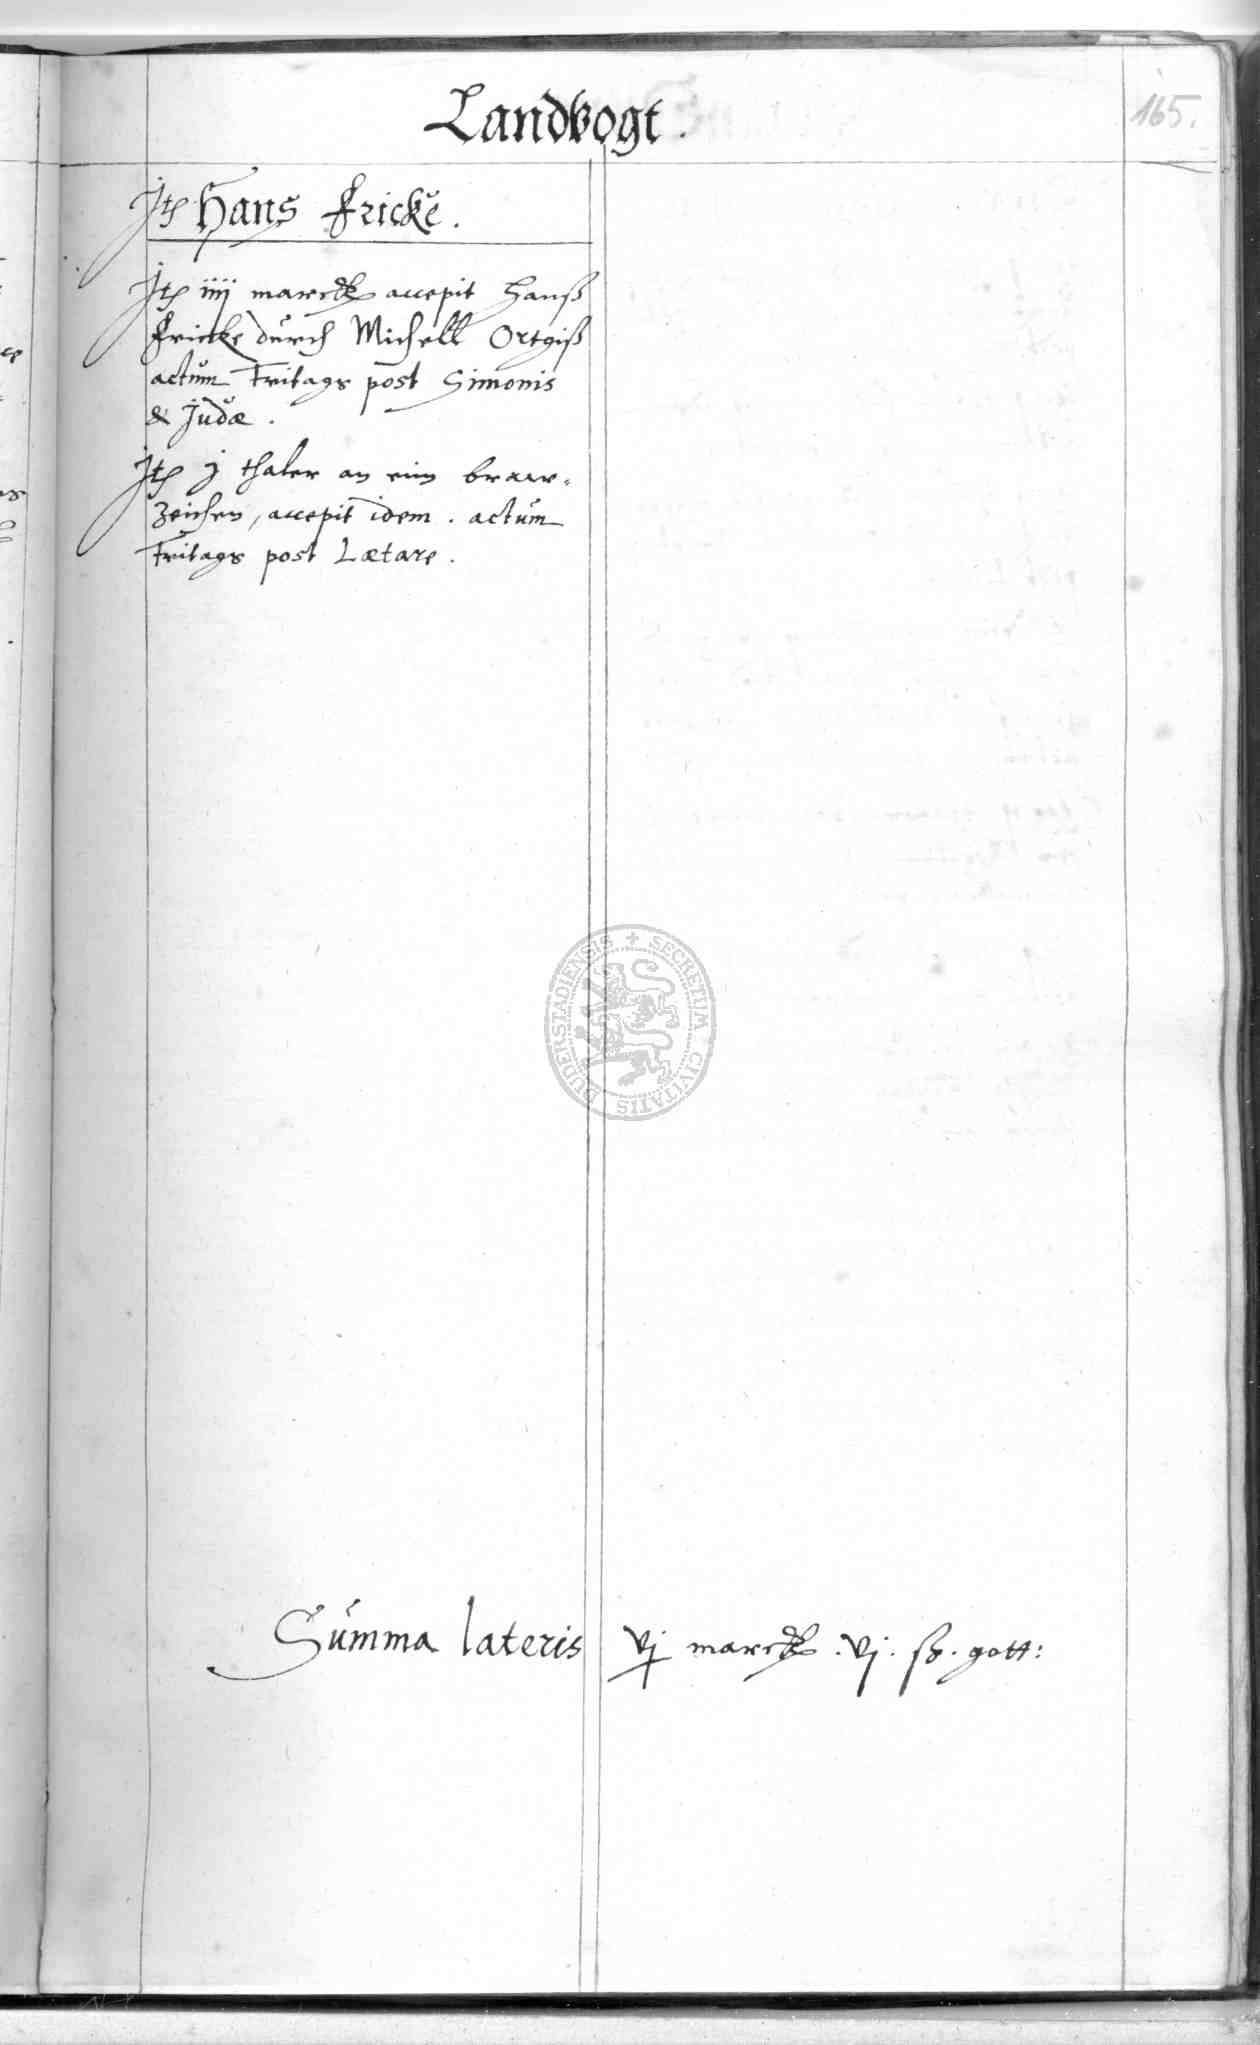 Landvogt.
165.
Jtem Hans Fricke.
Jtem iiij marck accepit Hanß
Fricke durch Michell Ortgiß
actum Fritags post Simonis
& Judæ.
Jtem j thaler an eim braw-
zeichen, accepit idem. actum
Fritags post Lætare.
SECRETUM CIVITATIS DUDERSTADIENSIS
Summa lateris vj marck. vj. ß. gott: